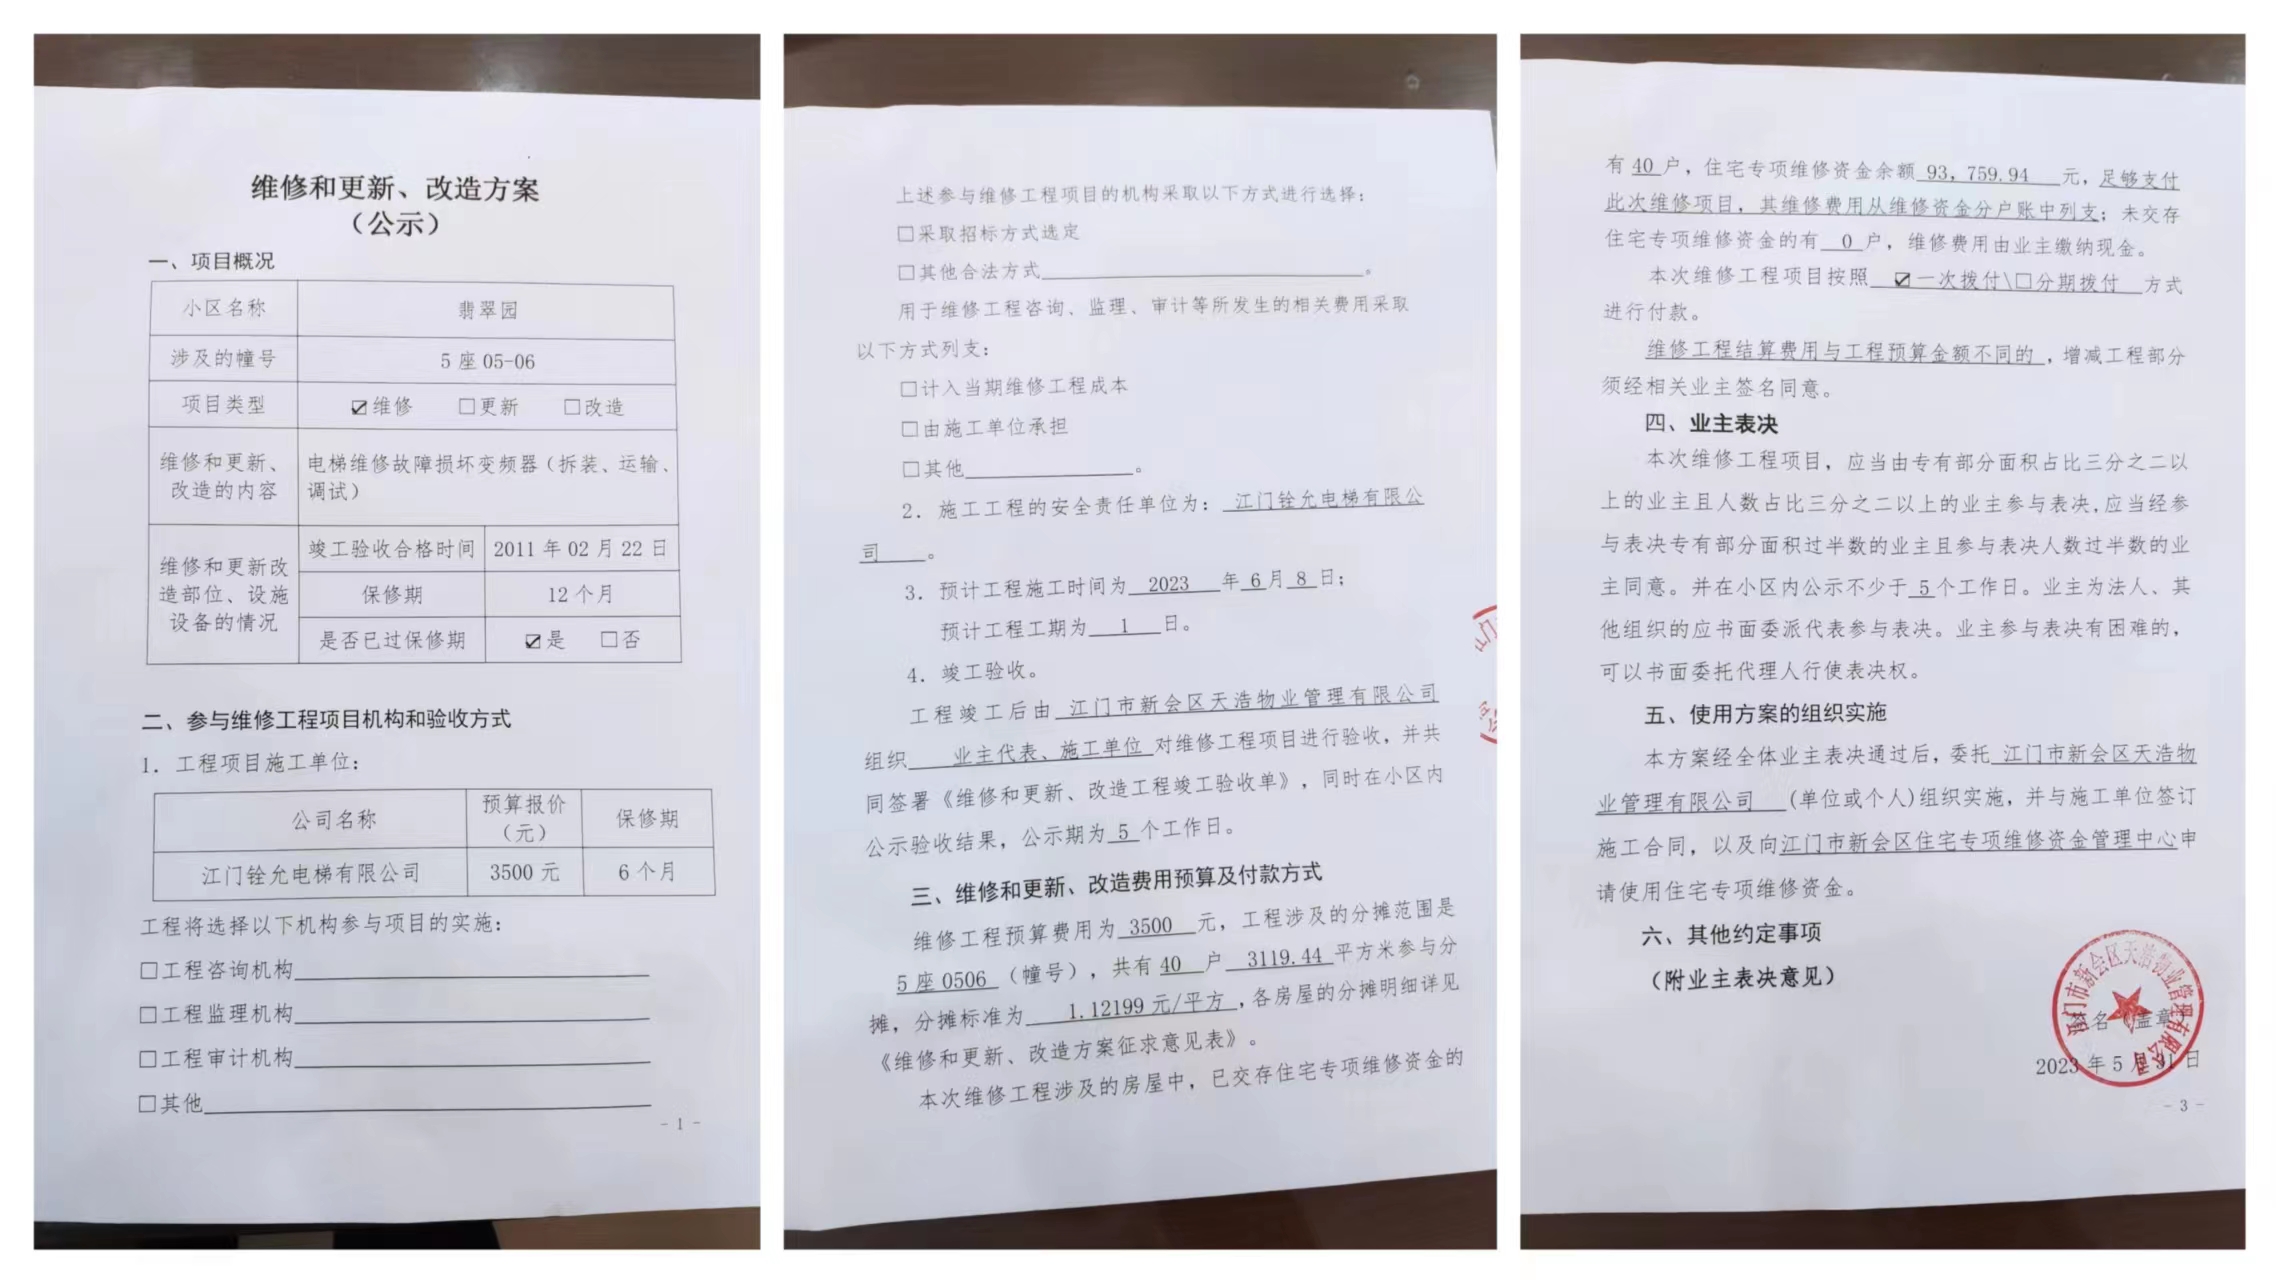 维修和更新、改造方案
（公示）
一、项目概况
小区名称 翡翠园
涉及的幢号 5座05-06
项目类型 ☑维修 □更新 □改造
维修和更新、
改造的内容
电梯维修故障损坏变频器（拆装、运输、
调试）
维修和更新改
造部位、设施
设备的情况
竣工验收合格时间 2011年02月22日
保修期 12个月
是否已过保修期 ☑是 □否
二、参与维修工程项目机构和验收方式
1. 工程项目施工单位：
公司名称 预算报价（元） 保修期
江门铨允电梯有限公司 3500元 6个月
工程将选择以下机构参与项目的实施：
□工程咨询机构
□工程监理机构
□工程审计机构
□其他
- 1 -
上述参与维修工程项目的机构采取以下方式进行选择：
□采取招标方式选定
□其他合法方式。
用于维修工程咨询、监理、审计等所发生的相关费用采取
以下方式列支：
□计入当期维修工程成本
□由施工单位承担
□其他。
2. 施工工程的安全责任单位为：江门铨允电梯有限公
司。
3. 预计工程施工时间为 2023 年 6 月 8 日；
预计工程工期为 1 日。
4. 竣工验收。
工程竣工后由 江门市新会区天浩物业管理有限公司
组织 业主代表、施工单位 对维修工程项目进行验收，并共
同签署《维修和更新、改造工程竣工验收单》，同时在小区内
公示验收结果，公示期为 5 个工作日。
三、维修和更新、改造费用预算及付款方式
维修工程预算费用为 3500 元，工程涉及的分摊范围是
5座0506（幢号），共有 40 户 3119.44 平方米参与分
摊，分摊标准为 1.12199元/平方，各房屋的分摊明细详见
《维修和更新、改造方案征求意见表》。
本次维修工程涉及的房屋中，已交存住宅专项维修资金的
有 40 户，住宅专项维修资金余额 93,759.94 元，足够支付
此次维修项目，其维修费用从维修资金分户账中列支；未交存
住宅专项维修资金的有 0 户，维修费用由业主缴纳现金。
本次维修工程项目按照 ☑一次拨付\□分期拨付 方式
进行付款。
维修工程结算费用与工程预算金额不同的，增减工程部分
须经相关业主签名同意。
四、业主表决
本次维修工程项目，应当由专有部分面积占比三分之二以
上的业主且人数占比三分之二以上的业主参与表决，应当经参
与表决专有部分面积过半数的业主且参与表决人数过半数的业
主同意。并在小区内公示不少于 5 个工作日。业主为法人、其
他组织的应书面委派代表参与表决。业主参与表决有困难的，
可以书面委托代理人行使表决权。
五、使用方案的组织实施
本方案经全体业主表决通过后，委托 江门市新会区天浩物
业管理有限公司 (单位或个人)组织实施，并与施工单位签订
施工合同，以及向江门市新会区住宅专项维修资金管理中心申
请使用住宅专项维修资金。
六、其他约定事项
（附业主表决意见）
江门市新会区天浩物业管理有限公司
签名（盖章）
2023年5月31日
- 3 -